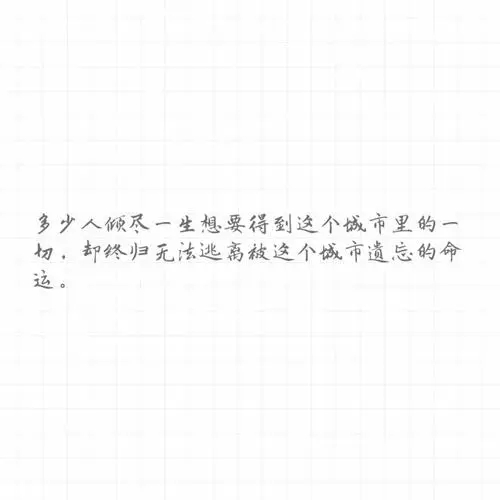 多少人倾尽一生想要得到这个城市里的一
切，却终归无法逃离被这个城市遗忘的命
运。